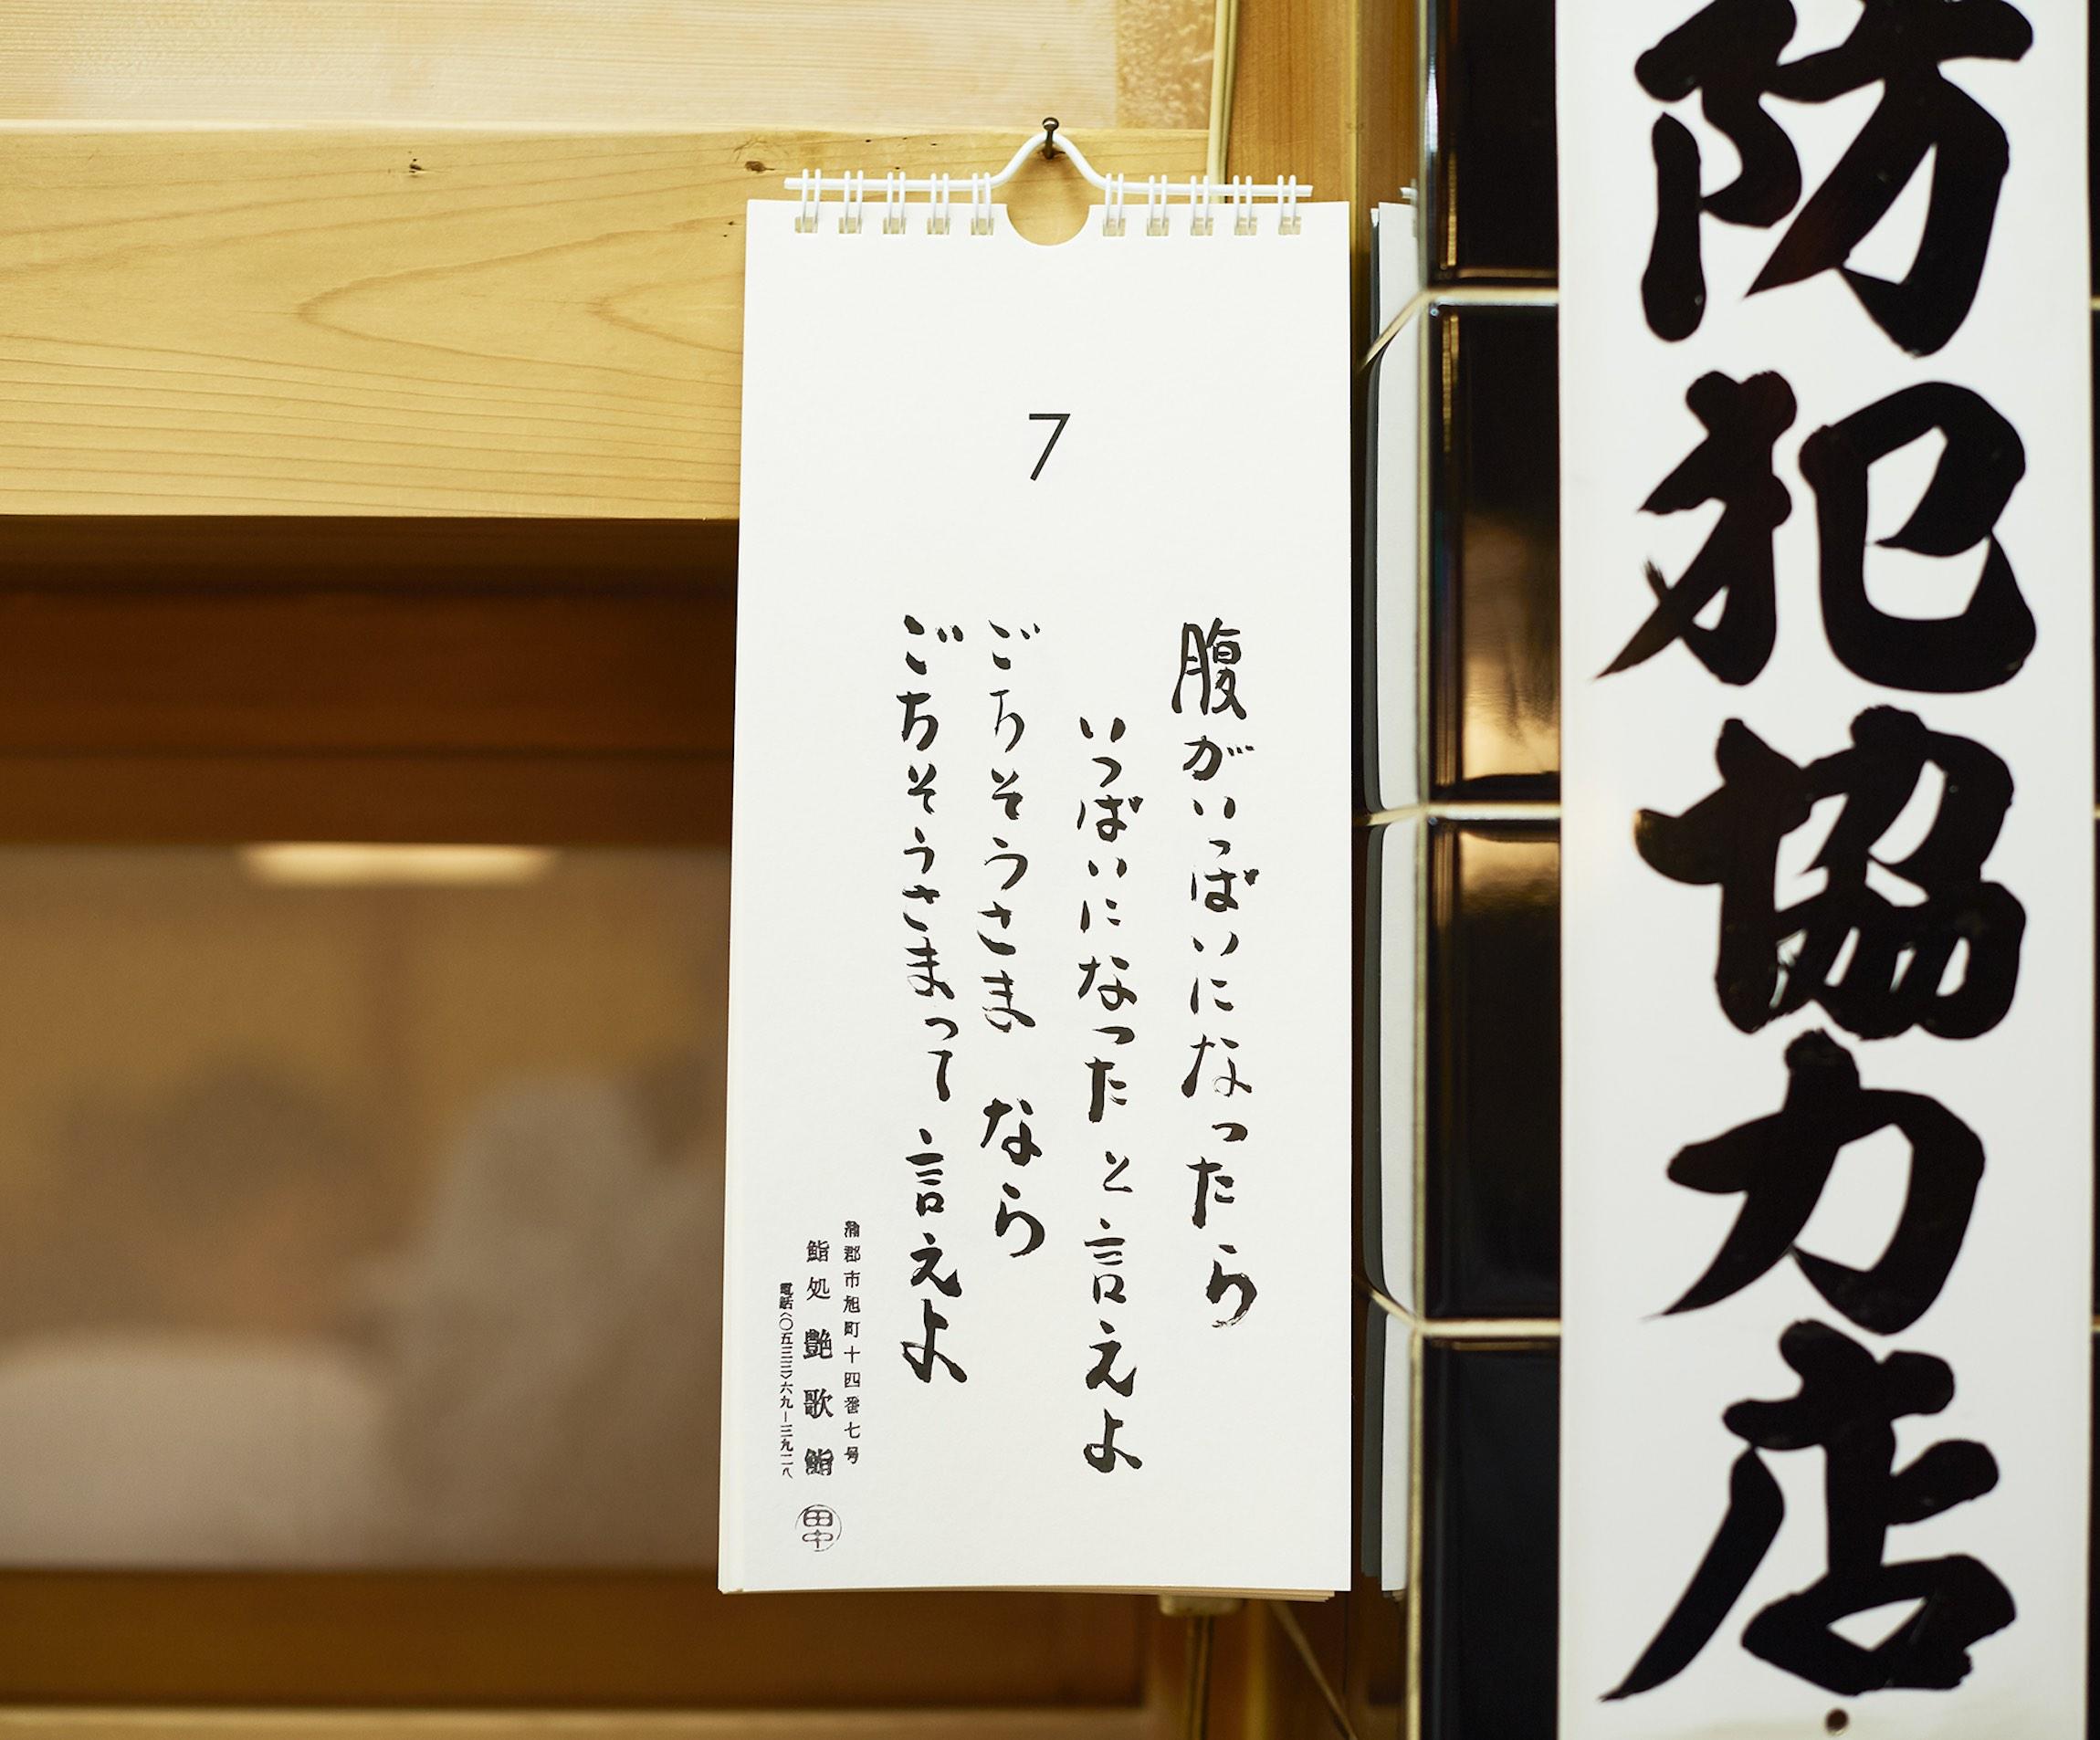 防犯協力店
7
腹がいっぱいになったら
いっぱいになったと言えよ
ごちそうさま なら
ごちそうさまって言えよ
蒲郡市旭町十四番七号
鮨処 艶歌鮨
電話(〇五三三)六九-三九二八
田中